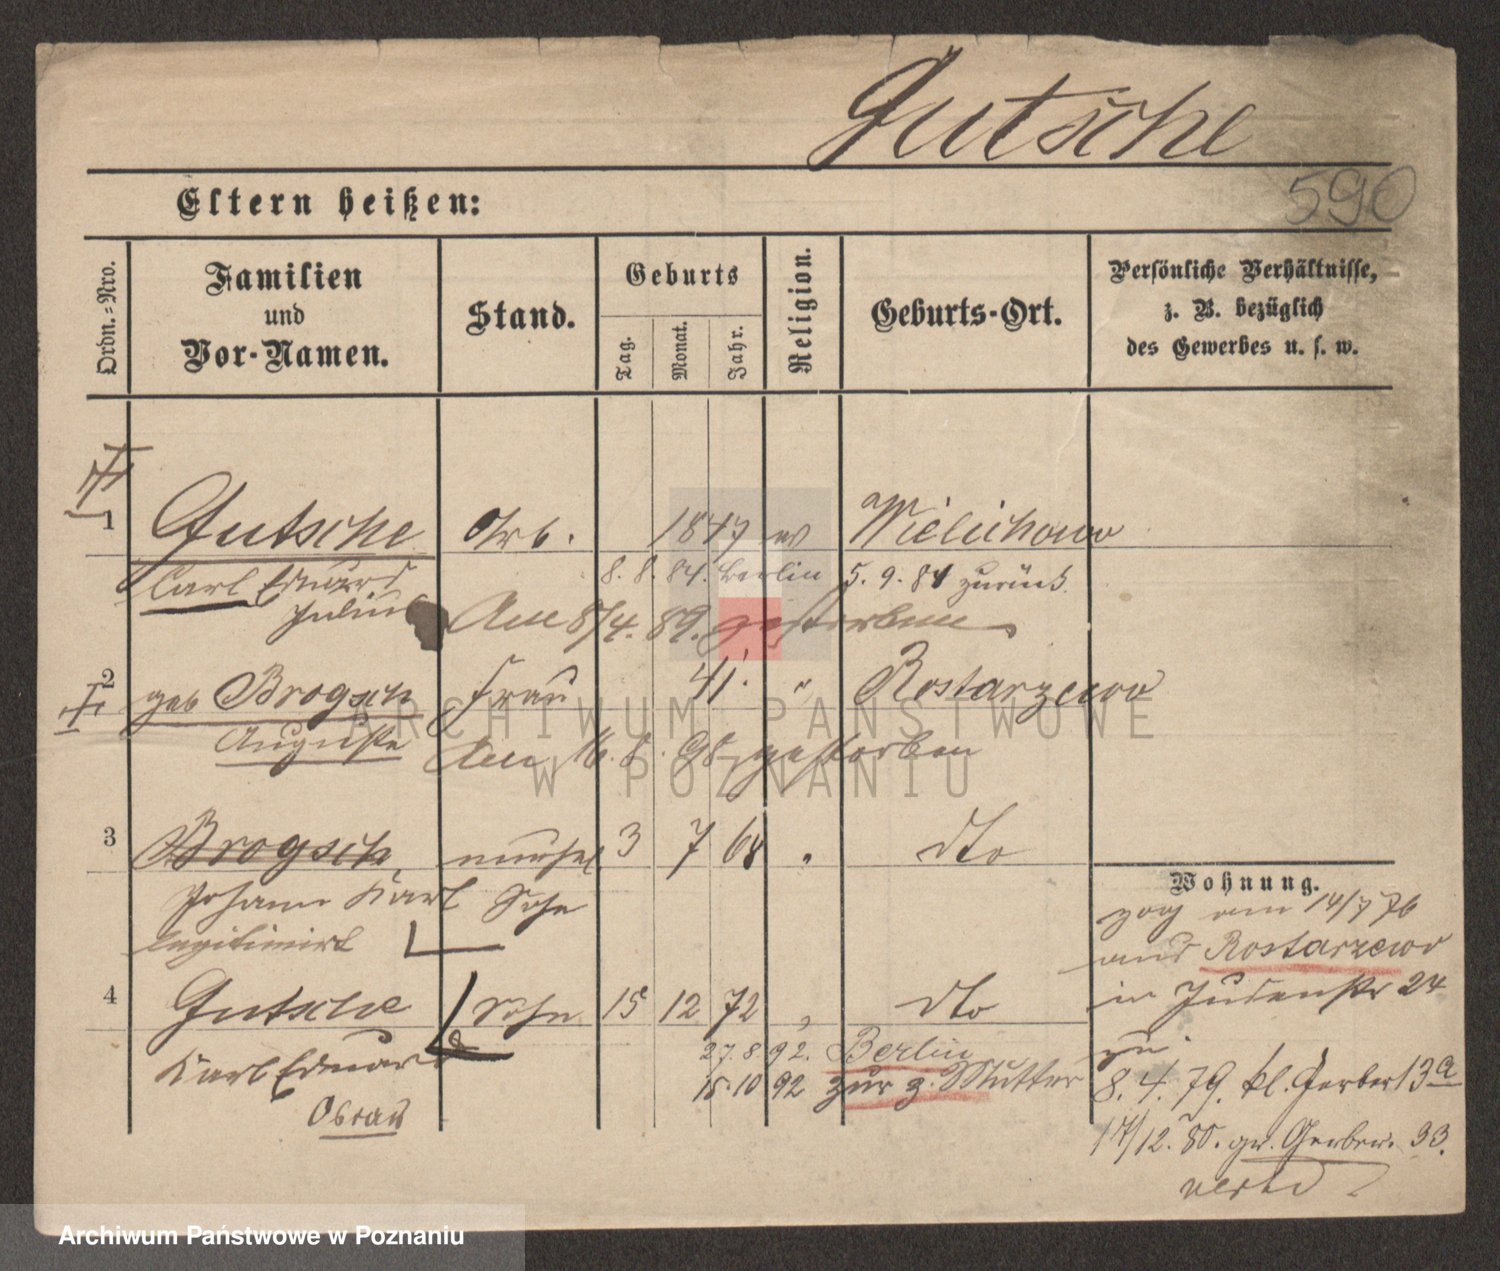 Gutsche
590
Eltern heißen:
Ordn.-Nro.
Familien und Vor-Namen.
Stand.
Geburts
Tag.
Monat.
Jahr.
Religion.
Geburts-Ort.
Persönliche Verhältnisse, z. B. bezüglich des Gewerbes u. s. w.
1 Gutsche Arb. 1847 ev Wielichowo
Carl Eduard Julius
8. 8. 84. Berlin 5. 9. 84 zurück.
Am 8/4. 89. gestorben
2 geb Brogsch Frau 41. " Rostarzewo
Auguste
Am 16. 8. 98 gestorben
3 Brogsch, unehel 3 7 68 " dto
Johann Karl Sohn
legitimirt
4 Gutsche Sohn 15 12 72 " dto
Karl Eduard
27. 8. 92. Berlin
15. 10 92 zur z. Mutter
Wohnung.
zog am 14/7 76
aus Rostarzewo
in Judenstr 24
zu
8. 4. 79. kl. Gerber 13a
17/12. 80. gr. Gerber. 33.
ARCHIWUM PAŃSTWOWE
W POZNANIU
Archiwum Państwowe w Poznaniu